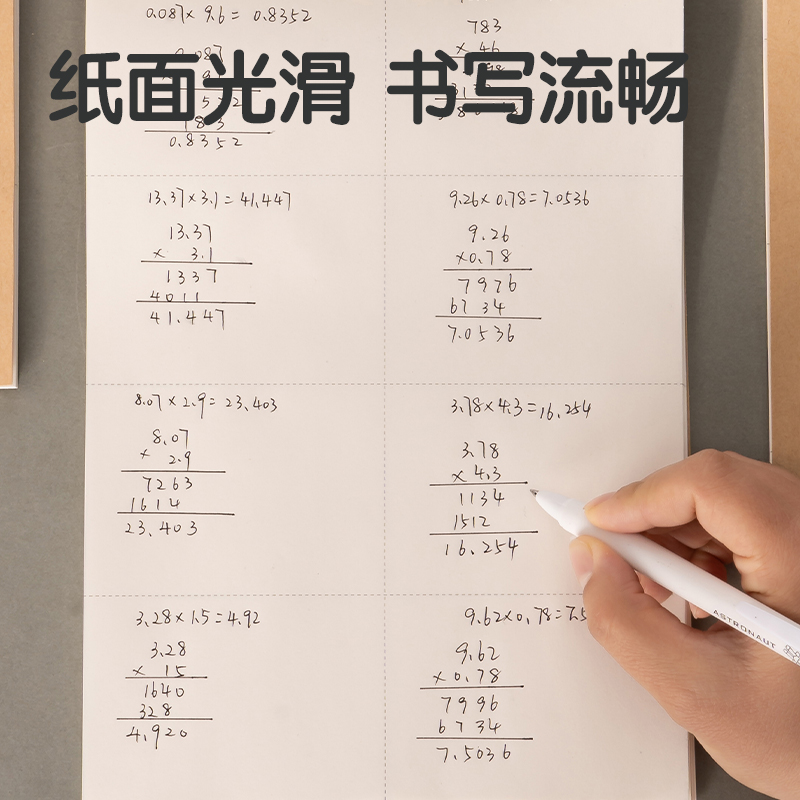 0.087×9.6= 0.8352
783
× 46
纸面光滑 书写流畅
0.8352
13.37×3.1=41.447
13.37
× 3.1
1337
4011
41.447
9.26×0.78=7.0536
9.26
×0.78
7976
6734
7.0536
8.07×2.9=23.403
8.07
× 2.9
7263
1614
23.403
3.78×4.3=16.254
3.78
× 4.3
1134
1512
16.254
3.28×1.5=4.92
3.28
× 15
1640
328
4.920
9.62×0.78=7.5
9.62
×0.78
7996
6734
7.5036
ASTRONAUT